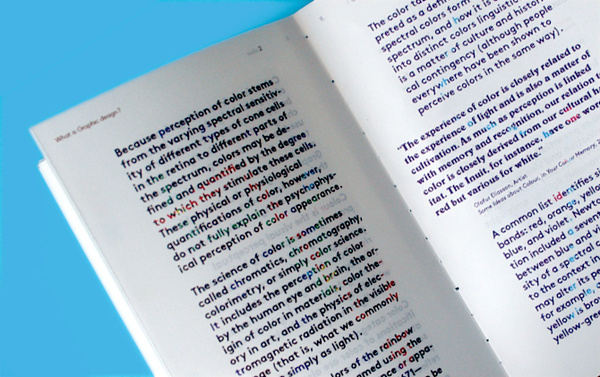 What is Graphic design?
2
Because perception of color stems
from the varying spectral sensitiv-
ity of different types of cone cells
in the retina to different parts of
the spectrum, colors may be de-
fined and quantified by the degree
to which they stimulate these cells.
These physical or physiological
quantifications of color, however,
do not fully explain the psychophys-
ical perception of color appearance.
The science of color is sometimes
called chromatics, chromatography,
colorimetry, or simply color science.
It includes the perception of color
by the human eye and brain, the or-
igin of color in materials, color the-
ory in art, and the physics of elec-
tromagnetic radiation in the visible
range (that is, what we commonly
simply as light).
colors of the rainbow
named using the
or appa-
671—
The color
preted as a
spectral colors form
spectrum, and how it is
into distinct colors linguisti
is a matter of culture and histor
cal contingency (although people
everywhere have been shown to
perceive colors in the same way).
"The experience of color is closely related to
the experience of light and is also a matter of
cultivation. As much as perception is linked
with memory and recognition, our relation t
color is closely derived from our cultural h
itat. The Inuit, for instance, have one wor
red but various for white."
Olafur Eliasson, Artist
Some Ideas about Colour, in Your Colour Memory, 2
A common list identifies si
bands: red, orange, yello
blue, and violet. Newto
tion included a sevent
between blue and vi
sity of a spectral c
to the context in
may alter its p
for example,
yellow is bro
yellow-gre